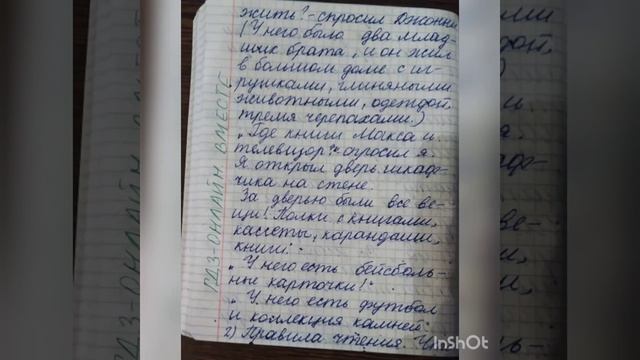 жить?"-спросил Джонни.
(У него было два млад-
ших брата, и он жил
в большом доме с иг-
рушками, глиняными
животными, одеждой,
тремя черепахами.)
"Где книги Макса и
телевизор?"- спросил я.
Я открыл дверь шкаф-
чика на стене.
За дверью были все ве-
щи! Полки с книгами,
кассеты, карандаши,
книги.
"У него есть бейсболь-
ные карточки!"
"У него есть футбол
и коллекция камней.
2) Правила чтения.
ГДЗ-ОНЛАЙН ВМЕСТЕ
InShOt